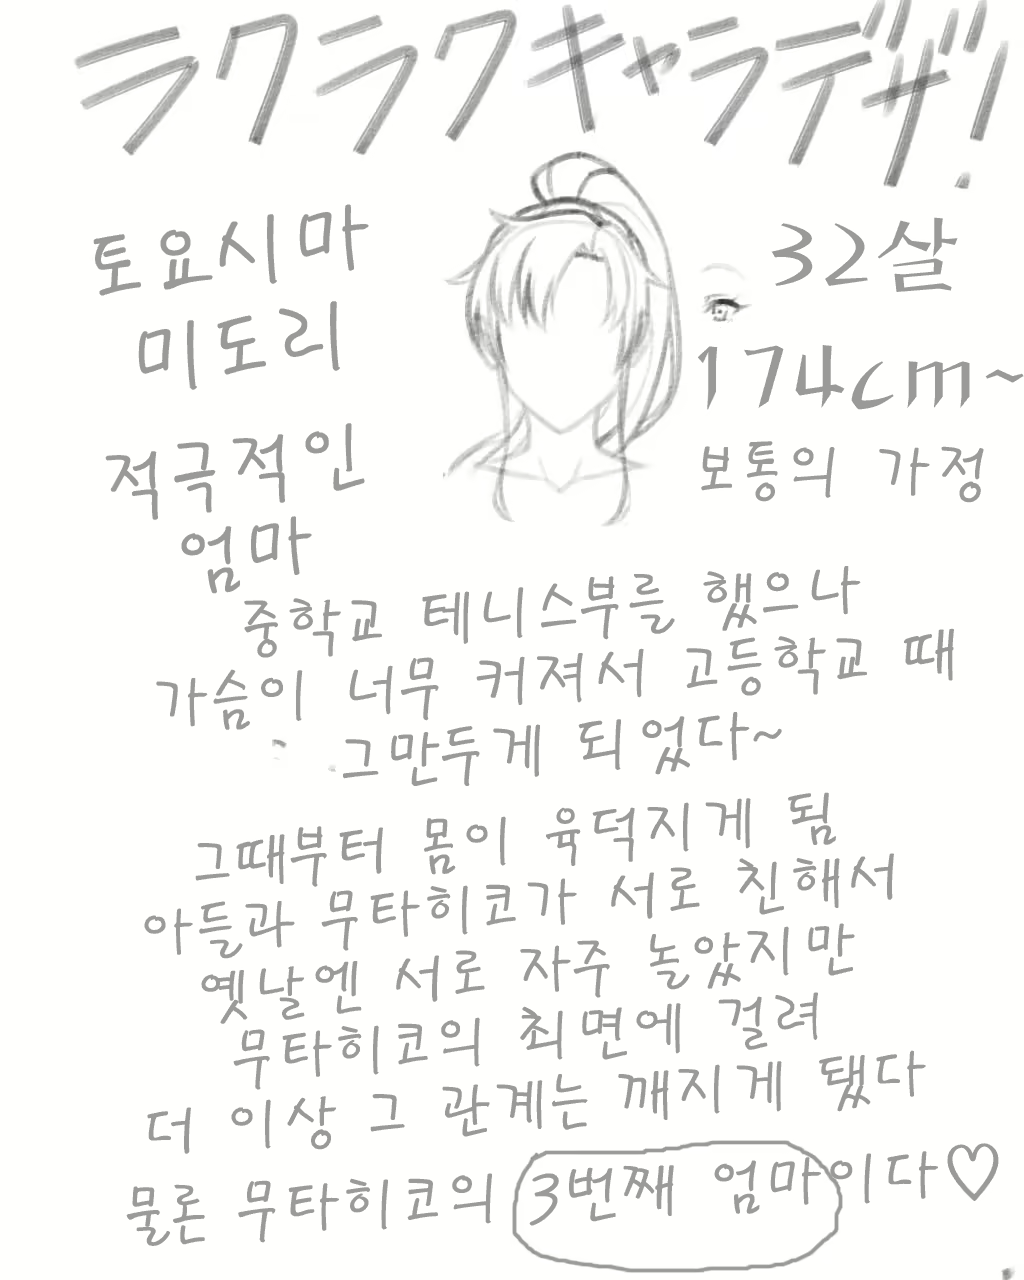 ラクラクキャラデザ!
토요시마
미도리
32살
174cm~
적극적인
엄마
보통의 가정
중학교 테니스부를 했으나
가슴이 너무 커져서 고등학교 때
그만두게 되었다~
그때부터 몸이 육덕지게 됨
아들과 무타히코가 서로 친해서
옛날엔 서로 자주 놀았지만
무타히코의 최면에 걸려
더 이상 그 관계는 깨지게 됐다
물론 무타히코의 3번째 엄마이다♡